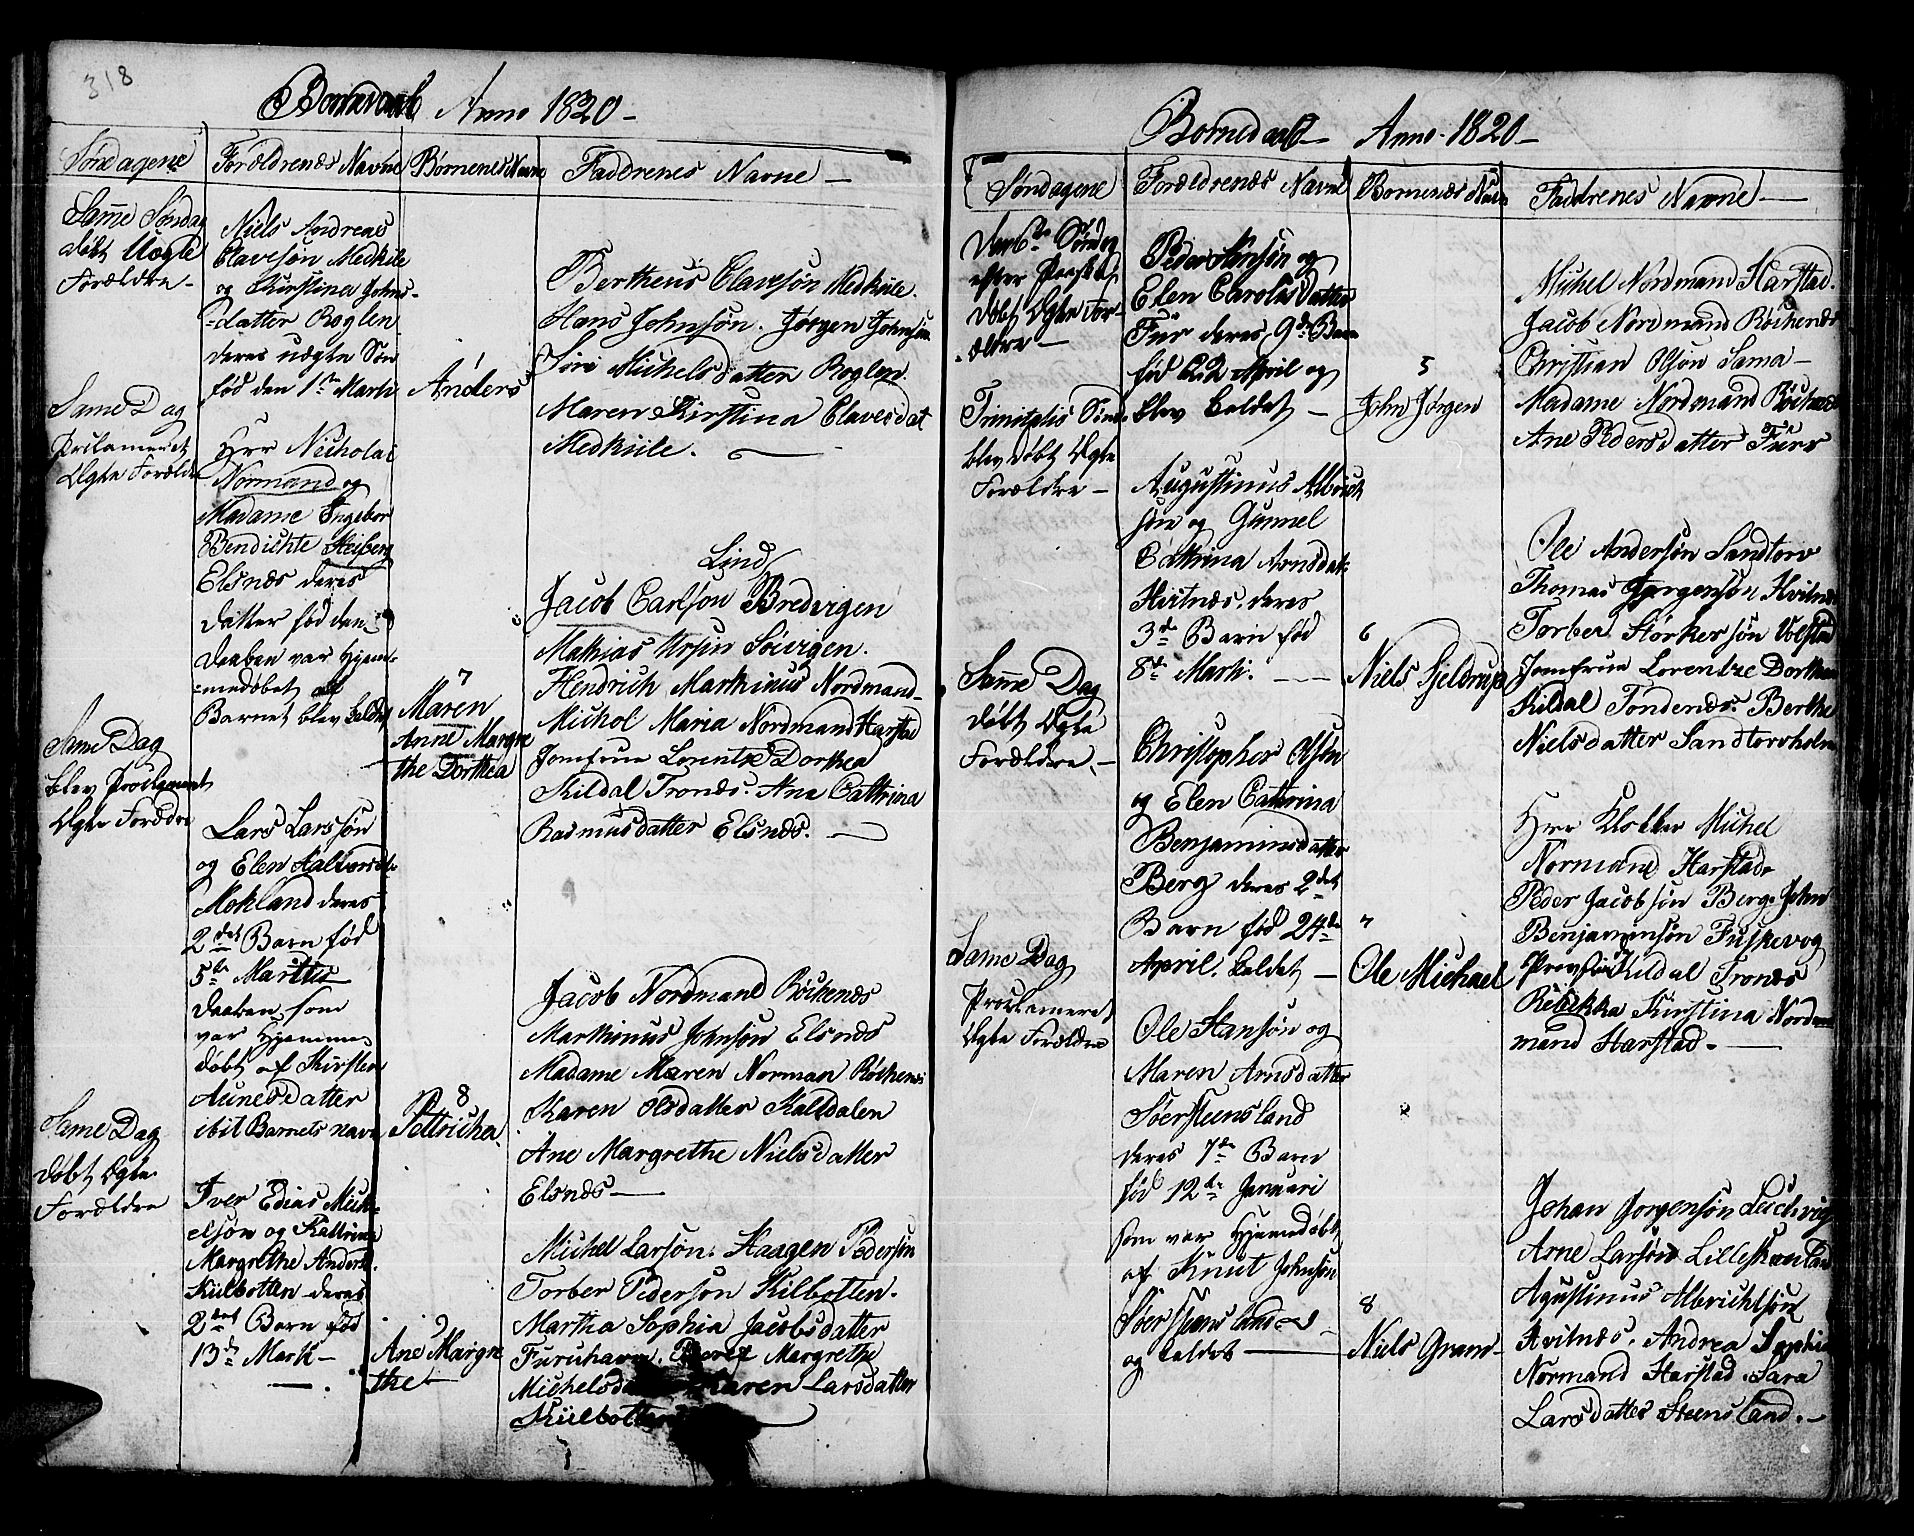 318
Bornedaab Anno 1820 –
Søndagene
Forældrenes Navne
Børnenes Navne
Faddrenes Navne –
Same Søndag
døbt Uægte
Forældre –
Niels Andreas
Clavesøn Medkiile
og Kirstina Johns-
datter Roglen
deres uægte Søn
fød den 1ste Marti
Anders
Bertheus Clavesøn Medkiile.
Hans Johnsøn. Jørgen Johnsøn
Siri Michelsdatter Roglen.
Maren Kirstina Clavesdat
Medkiile.
Same Dag
Proclameret
Ægte Forældre
Herr Nicholai
Normand og
Madame Ingebor
Bendichte Heiberg
Elsnæs deres
datter fød den
daaben var Hjem-
medøbet
Barnet blev kaldet
7
Maren
Anne Margre
the Dorthea
Lind
Jacob Carlson Bredvigen
Mathias Ursin Sørvigen.
Hendrich Marthinus Nordmand
Michol Maria Nordmand Harstad
Jomfrue Lorentze Dorthea
Kildal Tronæs. Ane Cathrina
Rasmusdatter Elsnæs. –
Same Dag
blev Proclameret
Ægte Forældre
Lars Larssøn
og Elen Halvorsdt.
Mokland deres
2det Barn fød
5te Martii
daaben som
var Hjemme
døbt af Kirsten
Aunesdatter
ibit Barnets navn
8
Pettricha
Jacob Nordmand Røchenæs
Marthinus Johnsøn Elsnæs
Madame Maren Norman Røchenes
Karen Olsdatter Kaltdalen
Ane Margrethe Nielsdatter
Elsnæs –
Same Dag
døbt Ægte
Forældre
Iver Edias Mich-
elsøn og Kattrina
Margrethe Andersd.
Kiilbotten deres
2det Barn fød
13de Mark –
9
Ane Margre
the
Michel Larsøn. Haagen Pedersøn
Torber Pedersøn Kilbotten.
Martha Sophia Jacobsdatter
Furuhavn. Beret Margrethe
Michelsda Karen Larsdatter
Kiilbotten
Bornedaab – Anno 1820 –
Søndagene
Forældrenes Navne
Bornenes Navn
Faddrenes Navne –
Den 6te Søndag
efter Paaske
døbt Ægte For-
ældre –
Peder Hansøn og
Elen Carolusdatter
Fuur deres 9de Barn
fød April og
blev kaldet –
5
John Jørgen
Michel Nordmand Harstad.
Jacob Nordmand Røchenæs
Christian Olsøn Sama –
Madame Nordmand Røchenæs
Ane Pedersdatter Furr
Trinitatis Sønd.
blev døbt Ægte
Forældre –
Augustinus Albricht
søn og Gunnel
Cathrina Arnsdat.
Hvitnæs. deres
3de Barn fød
8de Marti. –
6
Niels Gjeldrup
Ole Andersøn Sandtorv
Thomas Jørgensøn Hvitnæs
Torber Størkersøn Volstad
Jomfrue Lorentze Dorthea
Kildal Tøndenæs. Berthe
Nielsdatter Sandtorvholm
Same Dag
døbt Ægte
Forældre. –
Christopher Olsøn
og Elen Cathrina
Benjaminsdatter
Berg deres 2det
Barn fød 24de
April. kaldet –
7
Ole Michael
Herr Klokker Michel
Normand Harstad.
Peder Jacobsøn Berg. John
Benjaminsøn Fuskevog
Kildal Tronæs
Rebekka Kirstina Nord-
mand Harstad. –
Same Dag
Proclameret
Ægte Forældre
Ole Hansøn og
Maren Arnsdatter
Sørsteensland
deres 7de Barn
fød 12de Januari
som var Hjemdøbt
af Knut Johnsøn
Sørsteensland
og kaldet –
8
Niels Grand
Johan Jørgensøn Leichvig
Arne Larsøn Lilleskonland
Agustinus Albrichtsøn
Hvitnæs. Andrea Sophia
Normand Harstad. Sara
Larsdatter Steensland. –